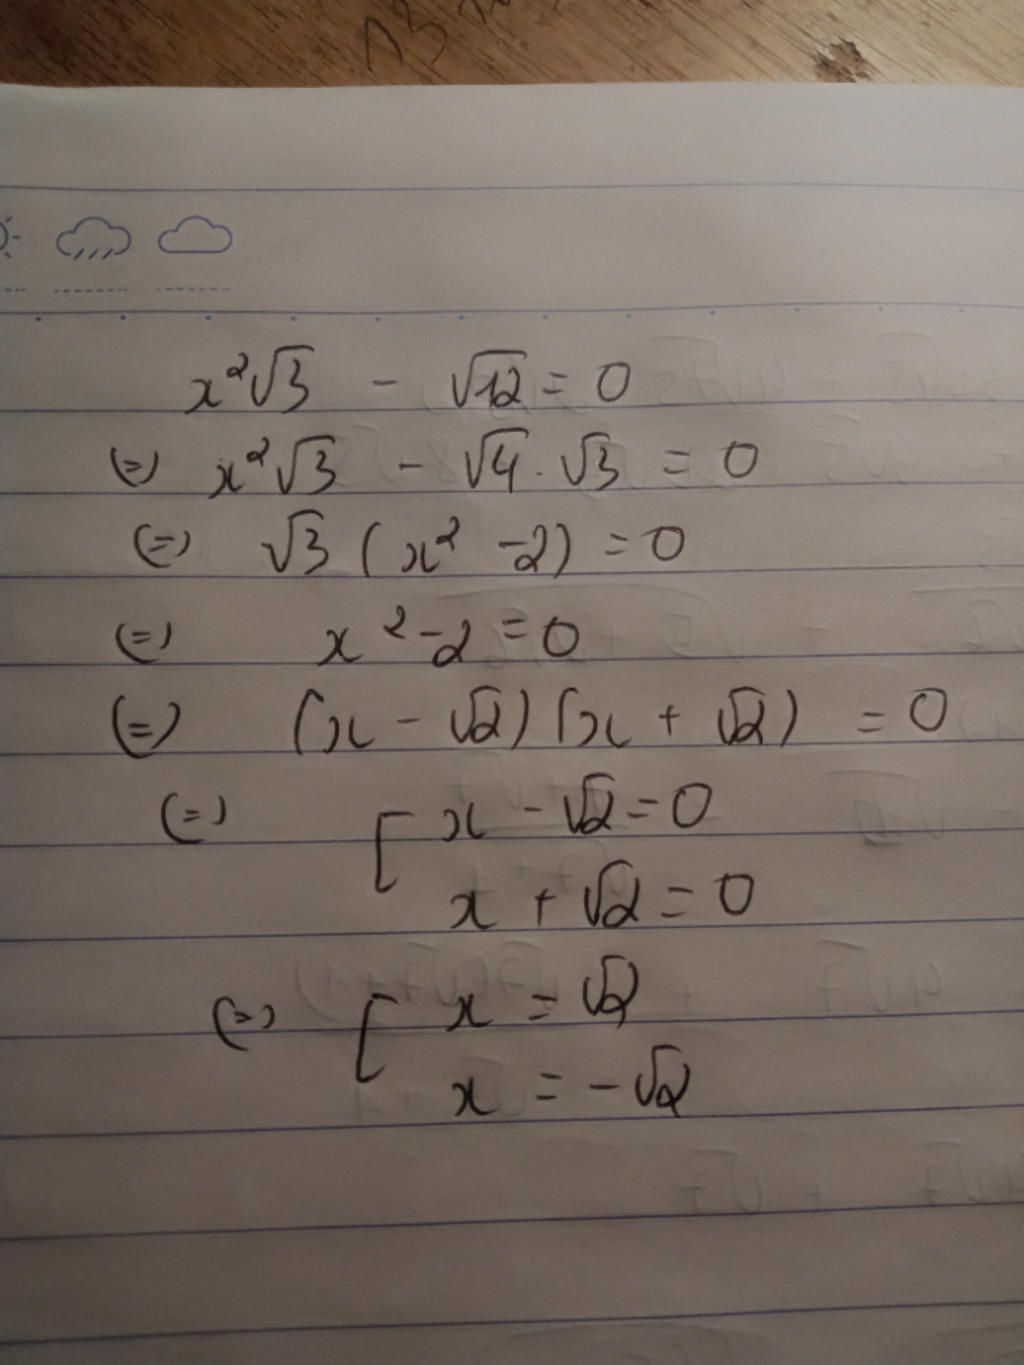 x²√3 - √12 = 0
(=) x²√3 - √4 . √3 = 0
(=) √3 (x² -2) = 0
(=) x² -2 = 0
(=) (x - √2) (x + √2) = 0
(=) [ x - √2 = 0
x + √2 = 0
(=) [ x = √2
x = -√2